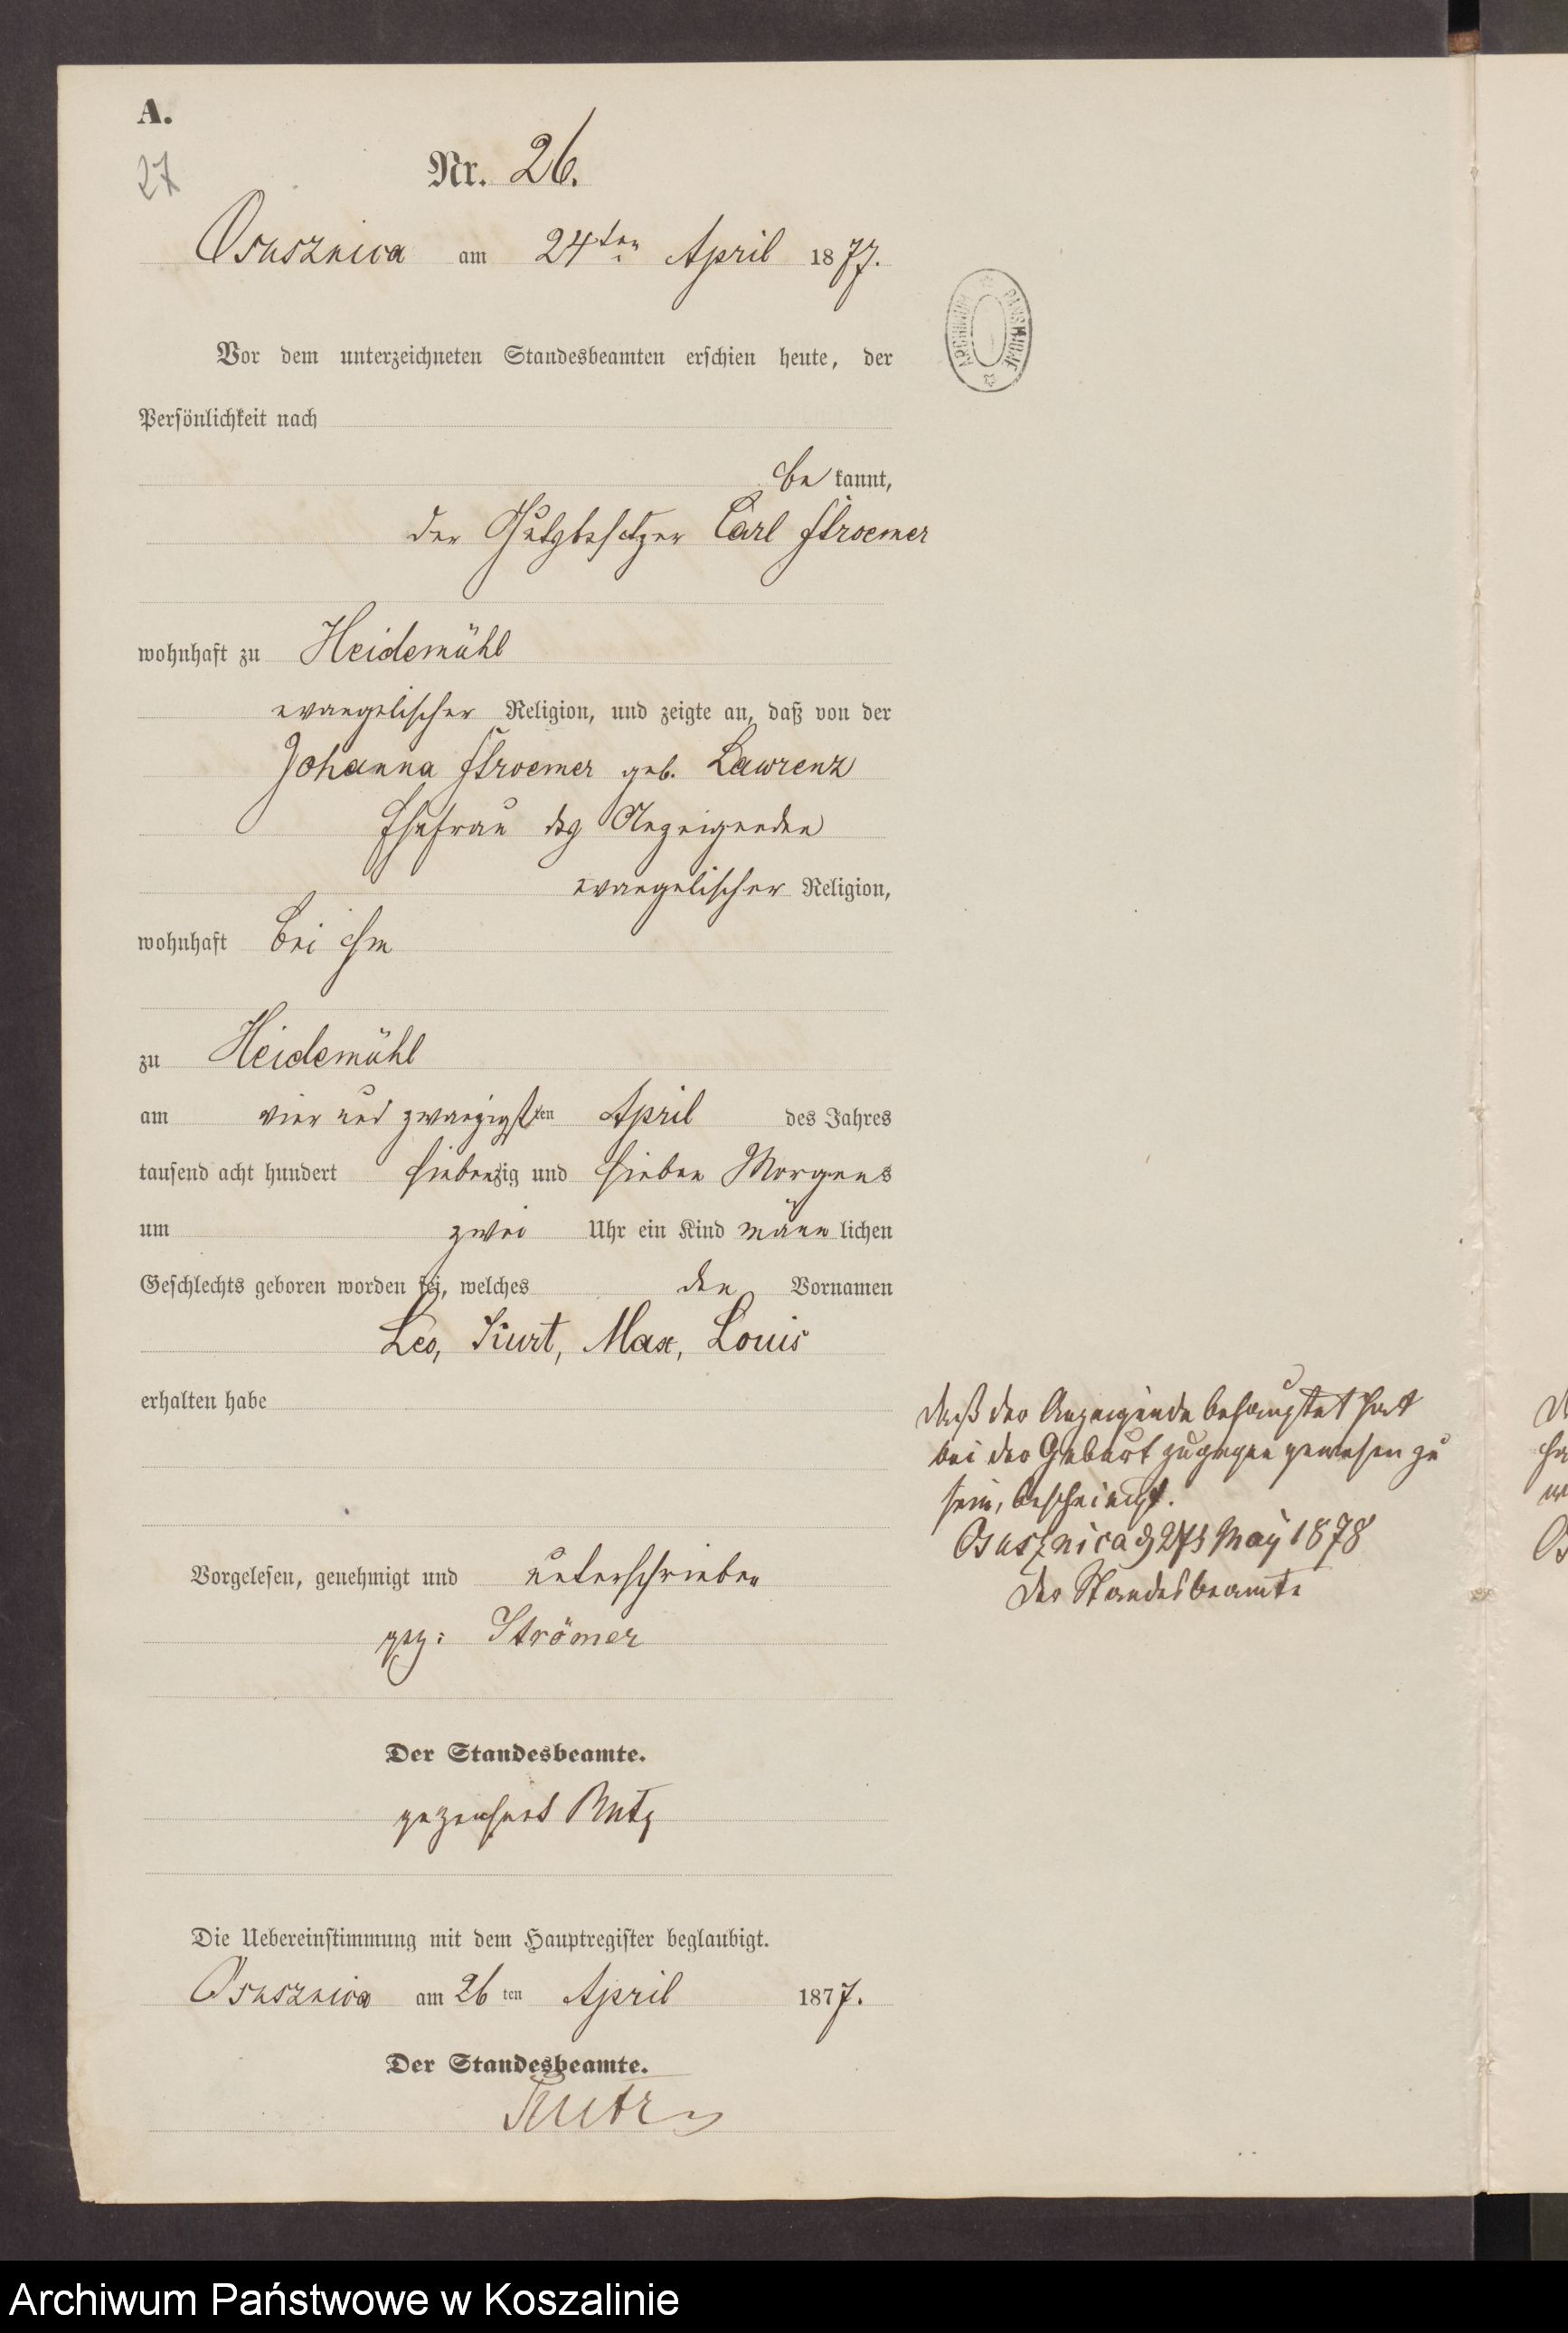 A.
27
Nr. 26.
Osusznica am 24ten April 1877.
Vor dem unterzeichneten Standesbeamten erschien heute, der
Persönlichkeit nach
be kannt,
der Gutsbesitzer Carl Stroemer
wohnhaft zu Heidemühl
evangelischer Religion, und zeigte an, daß von der
Johanna Stroemer geb. Lawrenz
Ehefrau des Anzeigenden
evangelischer Religion,
wohnhaft bei ihm
zu Heidemühl
am vier und zwanzigsten April des Jahres
tausend acht hundert siebenzig und sieben Morgens
um zwei Uhr ein Kind männ lichen
Geschlechts geboren worden sei, welches den Vornamen
Leo, Kurt, Max, Louis
erhalten habe
Daß der Anzeigende behauptet hat
bei der Geburt zugegen gewesen zu
sein, bescheinigt.
Osusznica d 27t May 1878
Der Standesbeamte
Vorgelesen, genehmigt und unterschrieben
gez: Strömer
Der Standesbeamte.
gezeichnet
Die Uebereinstimmung mit dem Hauptregister beglaubigt.
Osusznica am 26 ten April 1877.
Der Standesbeamte.
Archiwum Państwowe w Koszalinie